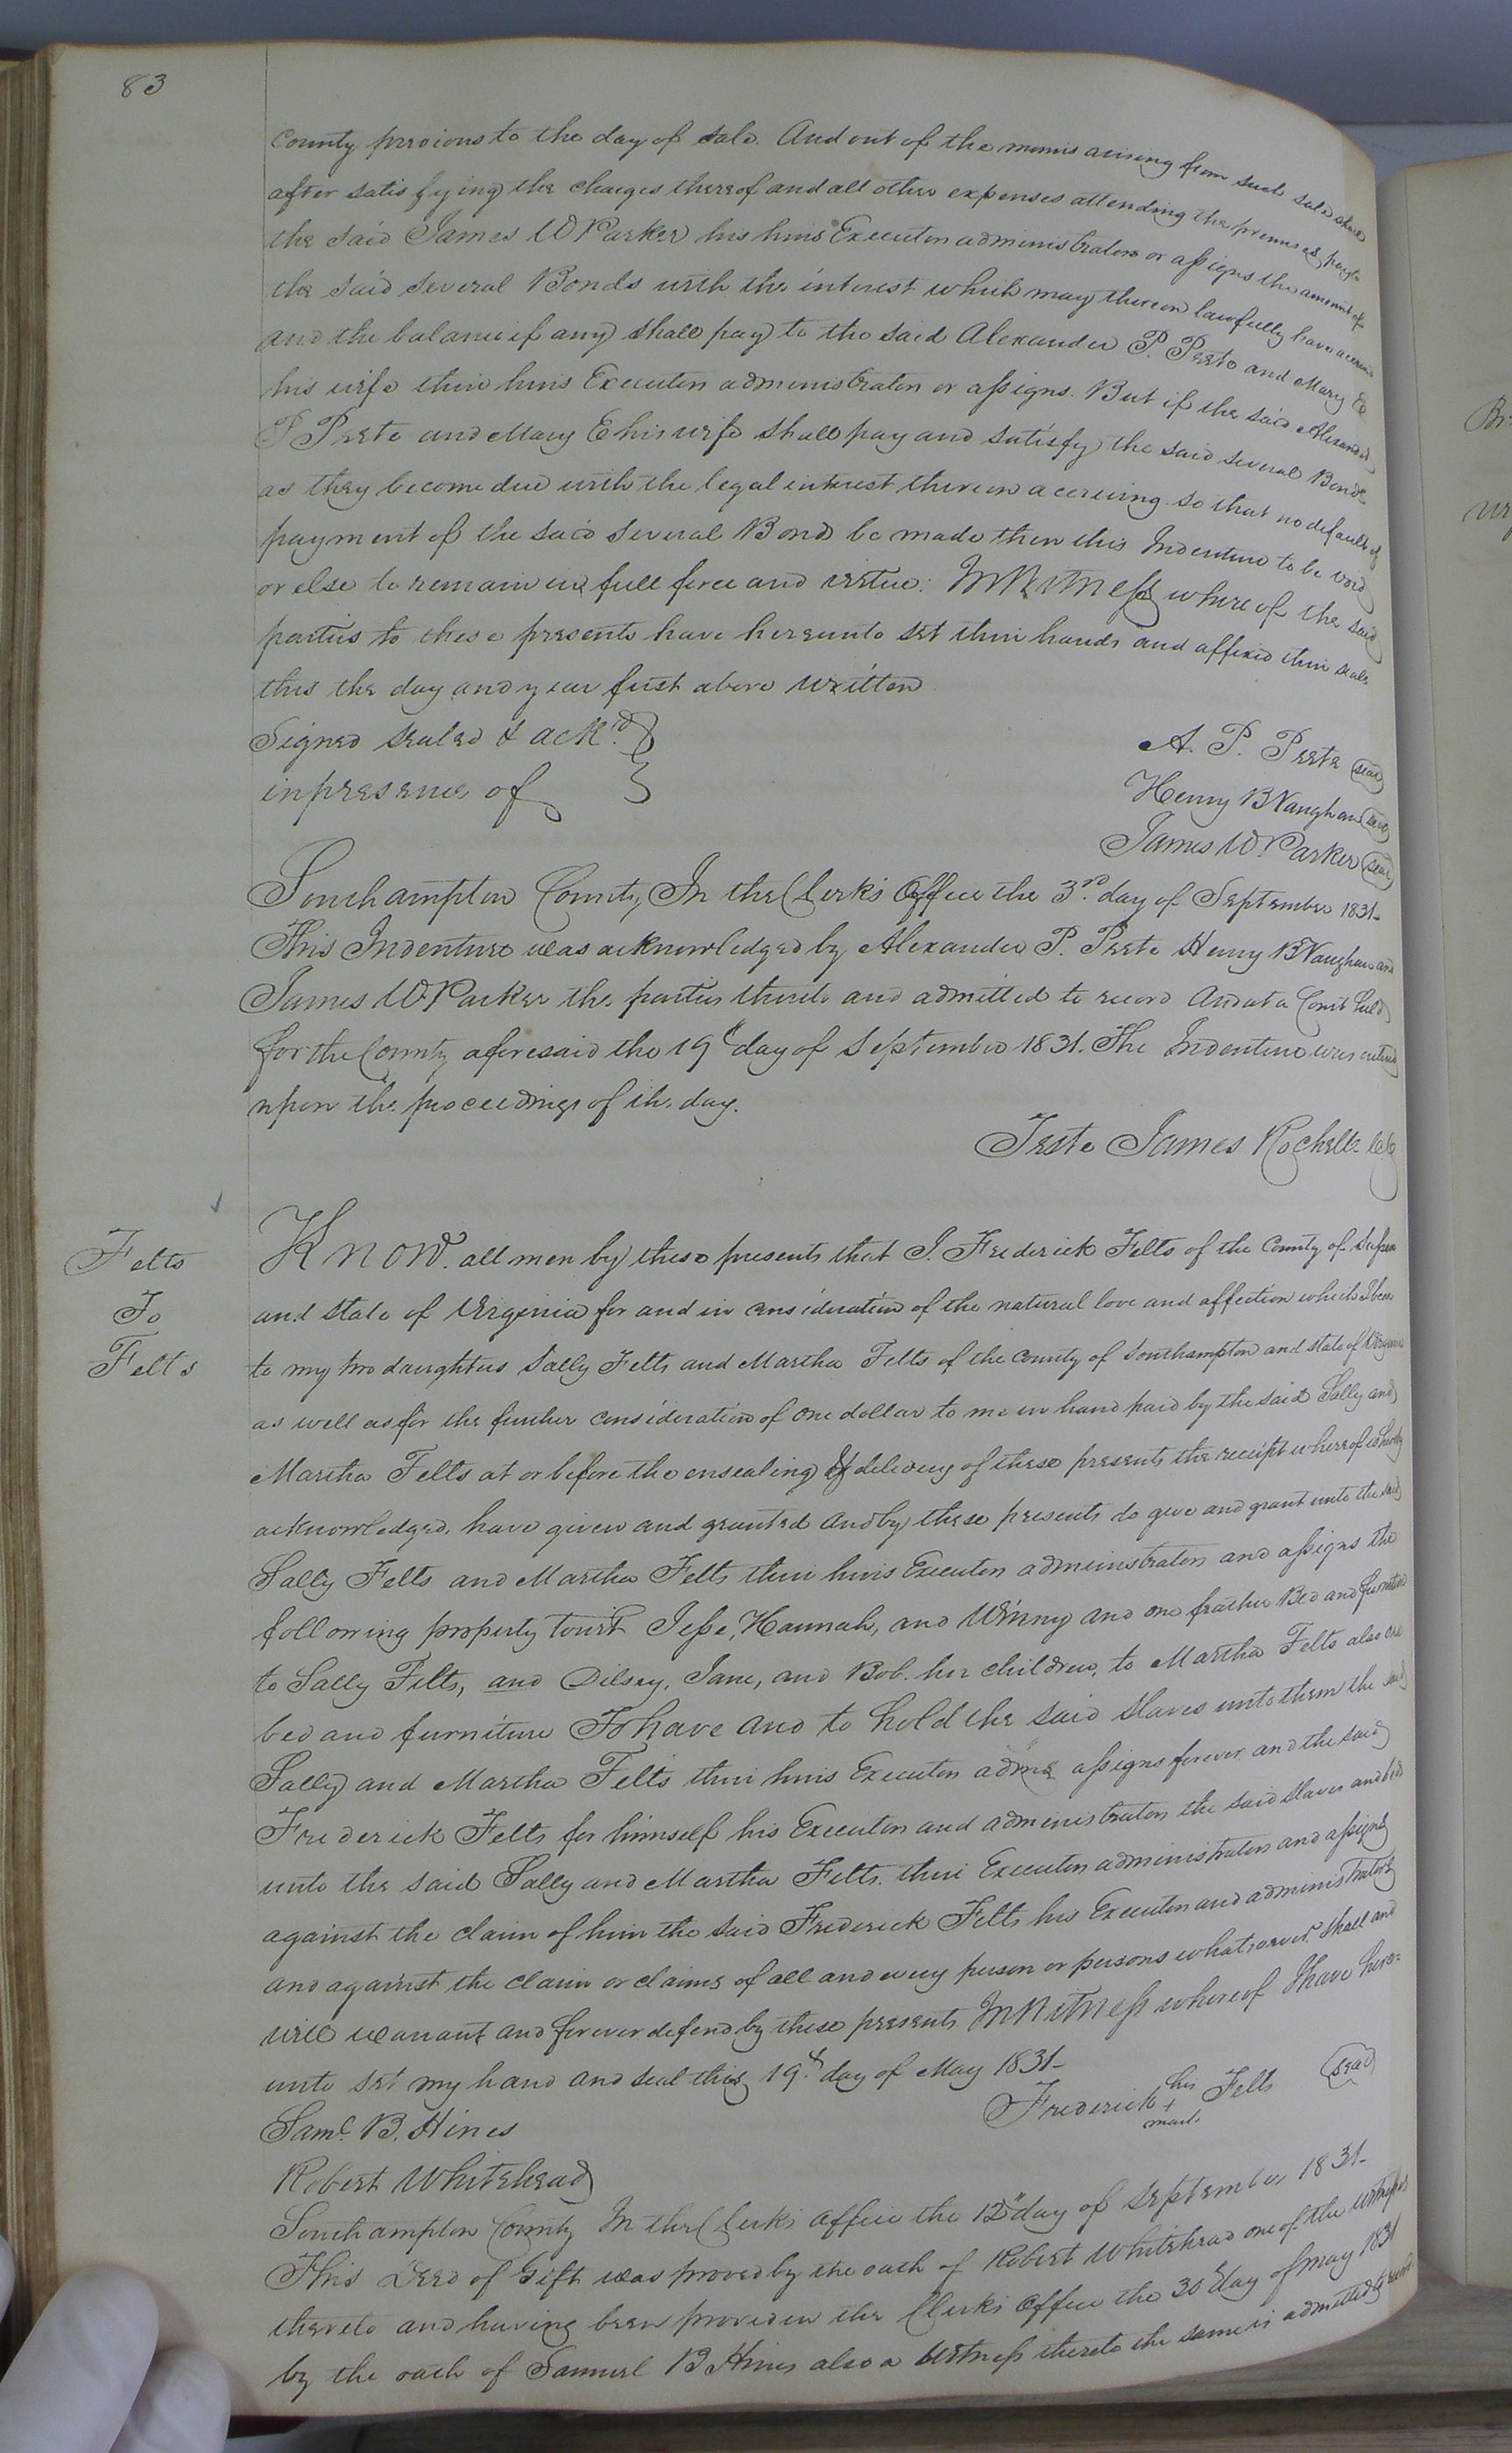 83
County previous to the day of sale. And out of the monies arising from such sale shall
after satisfying the charges thereof and all other expenses attending the premises pay to
the said James W Parker his heirs Executors administrators or assigns the amount of
the said several Bonds with the interest which may thereon lawfully have accrued
and the balance if any shall pay to the said Alexander P. Peete and Mary E
his wife their heirs Executors administrators or assigns. But if the said Alexander
P Peete and Mary E his wife shall pay and satisfy the said several Bonds
as they become due with the legal interest thereon accruing so that no default of
payment of the said several Bonds be made then this Indenture to be void
or else to remain in full force and virtue: In Witness whereof the said
parties to these presents have hereunto set their hands and affixed their seals
this the day and year first above written
Signed sealed & ackd.
in presence of
A. P. Peete seal
Henry B Vaughan seal
James W. Parker seal
Southampton County, In the Clerk's Office the 3rd. day of September 1831-
This Indenture was acknowledged by Alexander P. Peete Henry B Vaughan and
James W Parker the parties thereto and admitted to record And at a Court held
for the County aforesaid the 19th day of September 1831. The Indenture was entered
upon the proceedings of the day.
Teste James Rochelle
Felts
To
Felts
Know all men by these presents that I. Frederick Felts of the County of
and state of Virginia for and in consideration of the natural love and affection which I bear
to my two daughters Sally Felts and Martha Felts of the County of Southampton and state of Virginia
as well as for the further consideration of one dollar to me in hand paid by the said Sally and
Martha Felts at or before the ensealing & delivery of these presents the receipt whereof is hereby
acknowledged, have given and granted and by these presents do give and grant unto the said
Sally Felts and Martha Felts their heirs Executors administrators and assigns the
following property towit Jesse, Hannah, and Winny and one feather Bed and furniture
to Sally Felts, and Dilsey, Jane, and Bob. her children, to Martha Felts also one
bed and furniture To have and to hold the said slaves unto them the said
Sally and Martha Felts their heirs Executors adms assigns forever and the said
Frederick Felts for himself his Executors and administrators the said slaves and beds
unto the said Sally and Martha Felts. their Executors administrators and assigns
against the claim of him the said Frederick Felts his Executors and administrators
and against the claim or claims of all and every person or persons whatsoever shall and
will warrant and forever defend by these presents In Witness whereof I have here-
unto set my hand and seal this 19th day of May 1831-
Frederick his + mark Felts seal
Saml. B. Hines
Robert Whitehead
Southampton County In the Clerks office the 12th day of September 1831-
This Deed of Gift was proved by the oath of Robert Whitehead one of the witnesses
thereto and having been proved in the Clerks office the 30th day of May 1831
by the oath of Samuel B Hines also a witness thereto the same is admitted to record